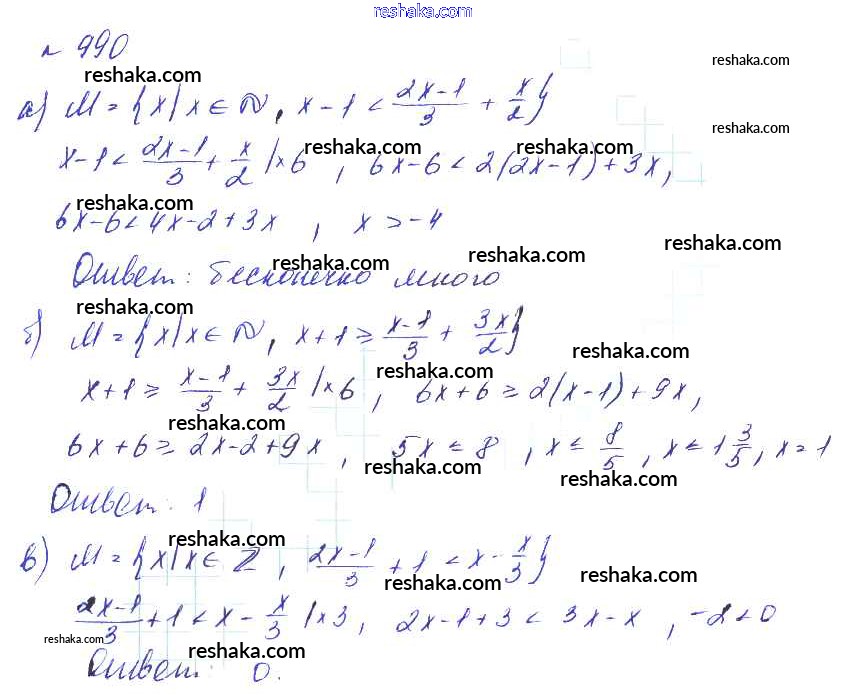 reshaka.com
№ 990
reshaka.com reshaka.com
а) M = {x | x ∈ N, x - 1 < (2x-1)/3 + x/2}
reshaka.com
reshaka.com reshaka.com
x - 1 < (2x-1)/3 + x/2 | × 6 , 6x - 6 < 2(2x - 1) + 3x,
reshaka.com
6x - 6 < 4x - 2 + 3x , x > -4
reshaka.com reshaka.com reshaka.com
Ответ: бесконечно много
reshaka.com
б) M = {x | x ∈ N, x + 1 ≥ (x-1)/3 + 3x/2}
reshaka.com
reshaka.com
x + 1 ≥ (x-1)/3 + 3x/2 | × 6 , 6x + 6 ≥ 2(x - 1) + 9x,
reshaka.com
6x + 6 ≥ 2x - 2 + 9x , 5x ≤ 8 , x ≤ 8/5 , x ≤ 1 3/5, x = 1
reshaka.com reshaka.com
Ответ: 1
reshaka.com
в) M = {x | x ∈ Z , (2x-1)/3 + 1 < x - x/3}
reshaka.com reshaka.com
(2x-1)/3 + 1 < x - x/3 | × 3, 2x - 1 + 3 < 3x - x , -2 < 0
reshaka.com reshaka.com
Ответ: 0.